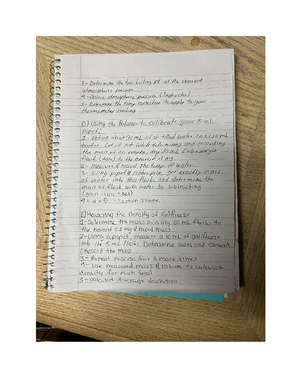 3 - Determine the true boiling pt at the observed
atmospheric pressure
4 - Obtain atmospheric pressure (Instructor)
5 - Determine the temp correction to apply to your
thermometer reading
D) Using the Balance to Calibrate your 10 mL
Pipet:
1 - Obtain about 70 mL of distilled water in a 150 mL
beaker. Let it sit while determining and recording
the mass of an empty, dry 50 mL Erlenmeyer
flask (to the nearest mg
2 - Measure & record the temp of water
3 - Using pipet &, get exactly 10 mL
of water into this flask and determine the
mass of flask with water by subtracting
E) Measuring the Density of Antifreeze
1 - Determine the mass of a dry 50 mL flask to
the nearest mg & record mass
2 - Using a pipet, measure 10 mL of antifreeze
into the flask. Determine mass and
record the mass
3 - Repeat process two more times
4 - Use measured mass & volume to calculate
density for each trial
5 - Calculate average deviation